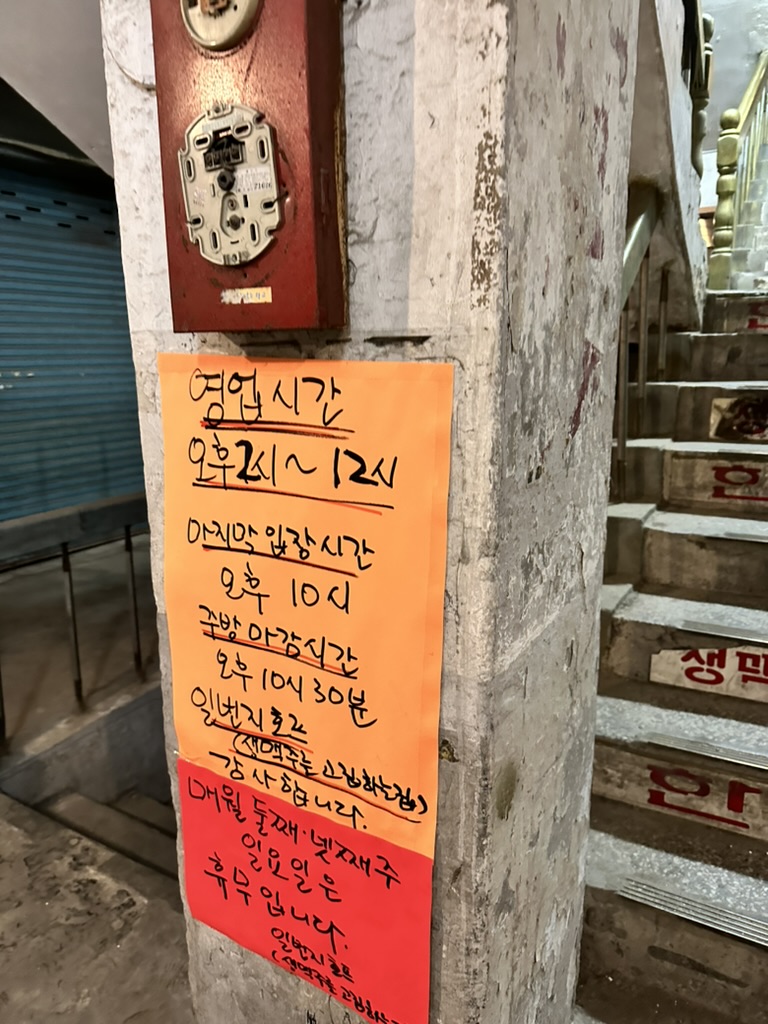 영업시간
오후 2시 ~ 12시
마지막 입장시간
오후 10시
주방 마감시간
오후 10시 30분
일번지호프
(생맥주를 고집하는집)
감사합니다.
매월 둘째·넷째주
일요일은
휴무입니다.
일번지호프
(생맥주를 고집하는
생
생맥